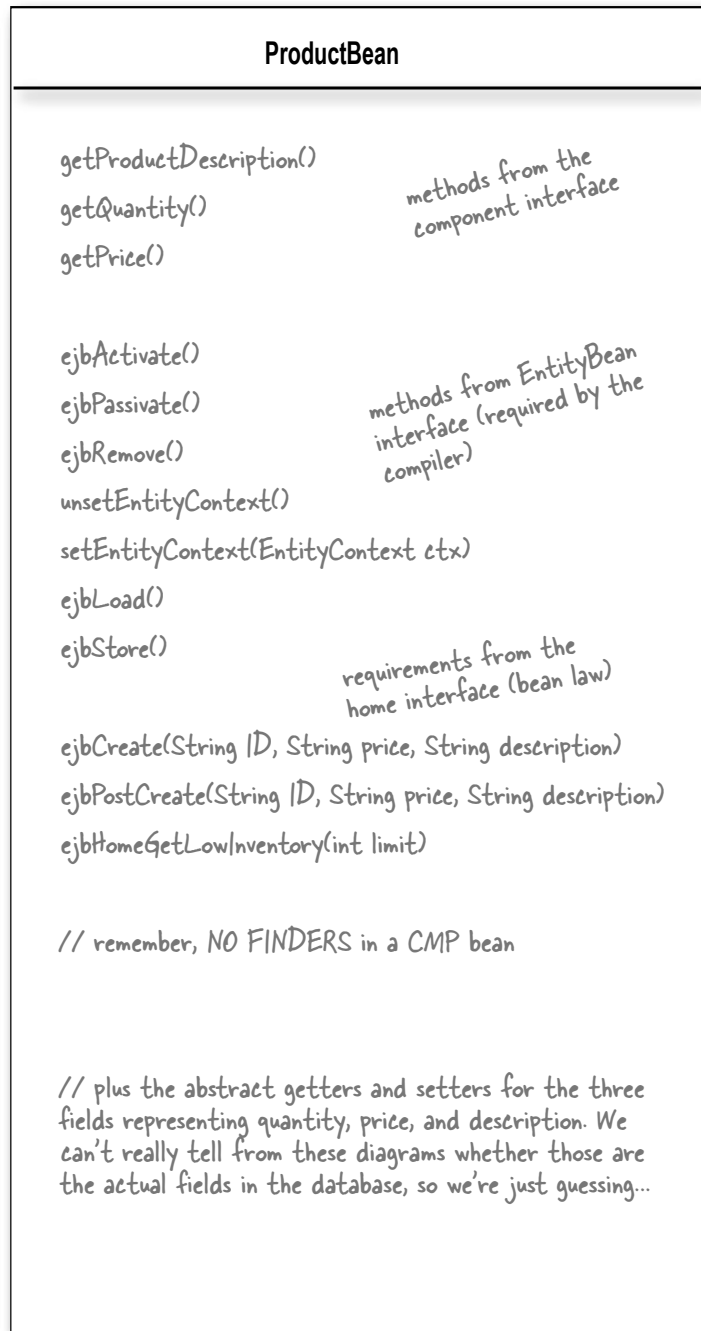 ProductBean
getProductDescription()
getQuantity()
getPrice()
methods from the
component interface
ejbActivate()
ejbPassivate()
ejbRemove()
unsetEntityContext()
setEntityContext(EntityContext ctx)
ejbLoad()
ejbStore()
methods from EntityBean
interface (required by the
compiler)
requirements from the
home interface (bean law)
ejbCreate(String ID, String price, String description)
ejbPostCreate(String ID, String price, String description)
ejbHomeGetLowInventory(int limit)
// remember, NO FINDERS in a CMP bean
// plus the abstract getters and setters for the three
fields representing quantity, price, and description. We
can't really tell from these diagrams whether those are
the actual fields in the database, so we're just guessing...